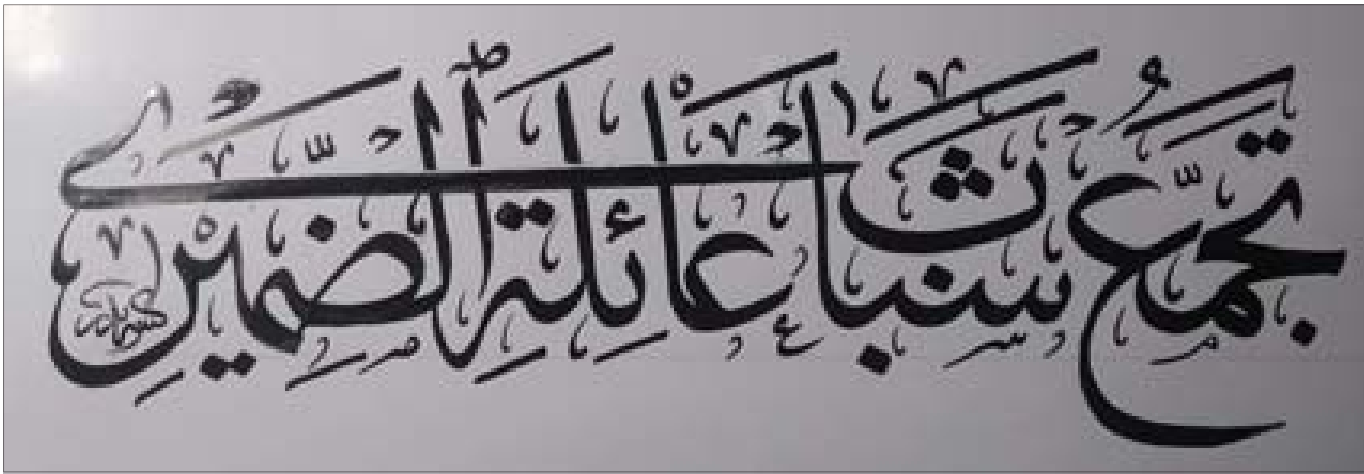 تجمّع شباب عائلة الضميري